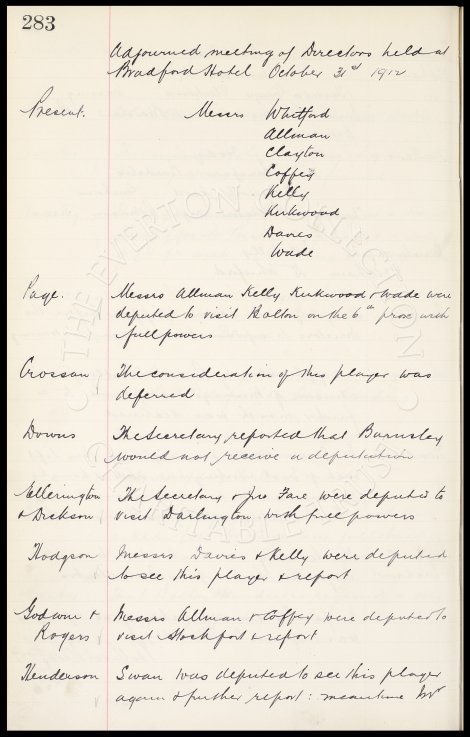 283
Adjourned meeting of Directors held at
Bradford Hotel October 31st 1912
Present. Messrs Whitford
Allman
Clayton
Coffey
Kelly
Kirkwood
Davies
Wade
Page. Messrs Allman Kelly Kirkwood & Wade were
deputed to visit Bolton on the 6th prox with
full powers
Crossan The consideration of this player was
deferred
Downs The Secretary reported that Barnsley
would not receive a deputation
Ellerington The Secretary & Jno Fare were deputed to
& Dickson visit Darlington with full powers
Hodgson Messrs Davies & Kelly were deputed
to see this player & report
Godwin & Messrs Allman & Coffey were deputed to
Rogers visit Stockport & report
Henderson Swan was deputed to see this player
again & further report: meantime Mr
THE EVERTON COLLECTION
CHARITABLE